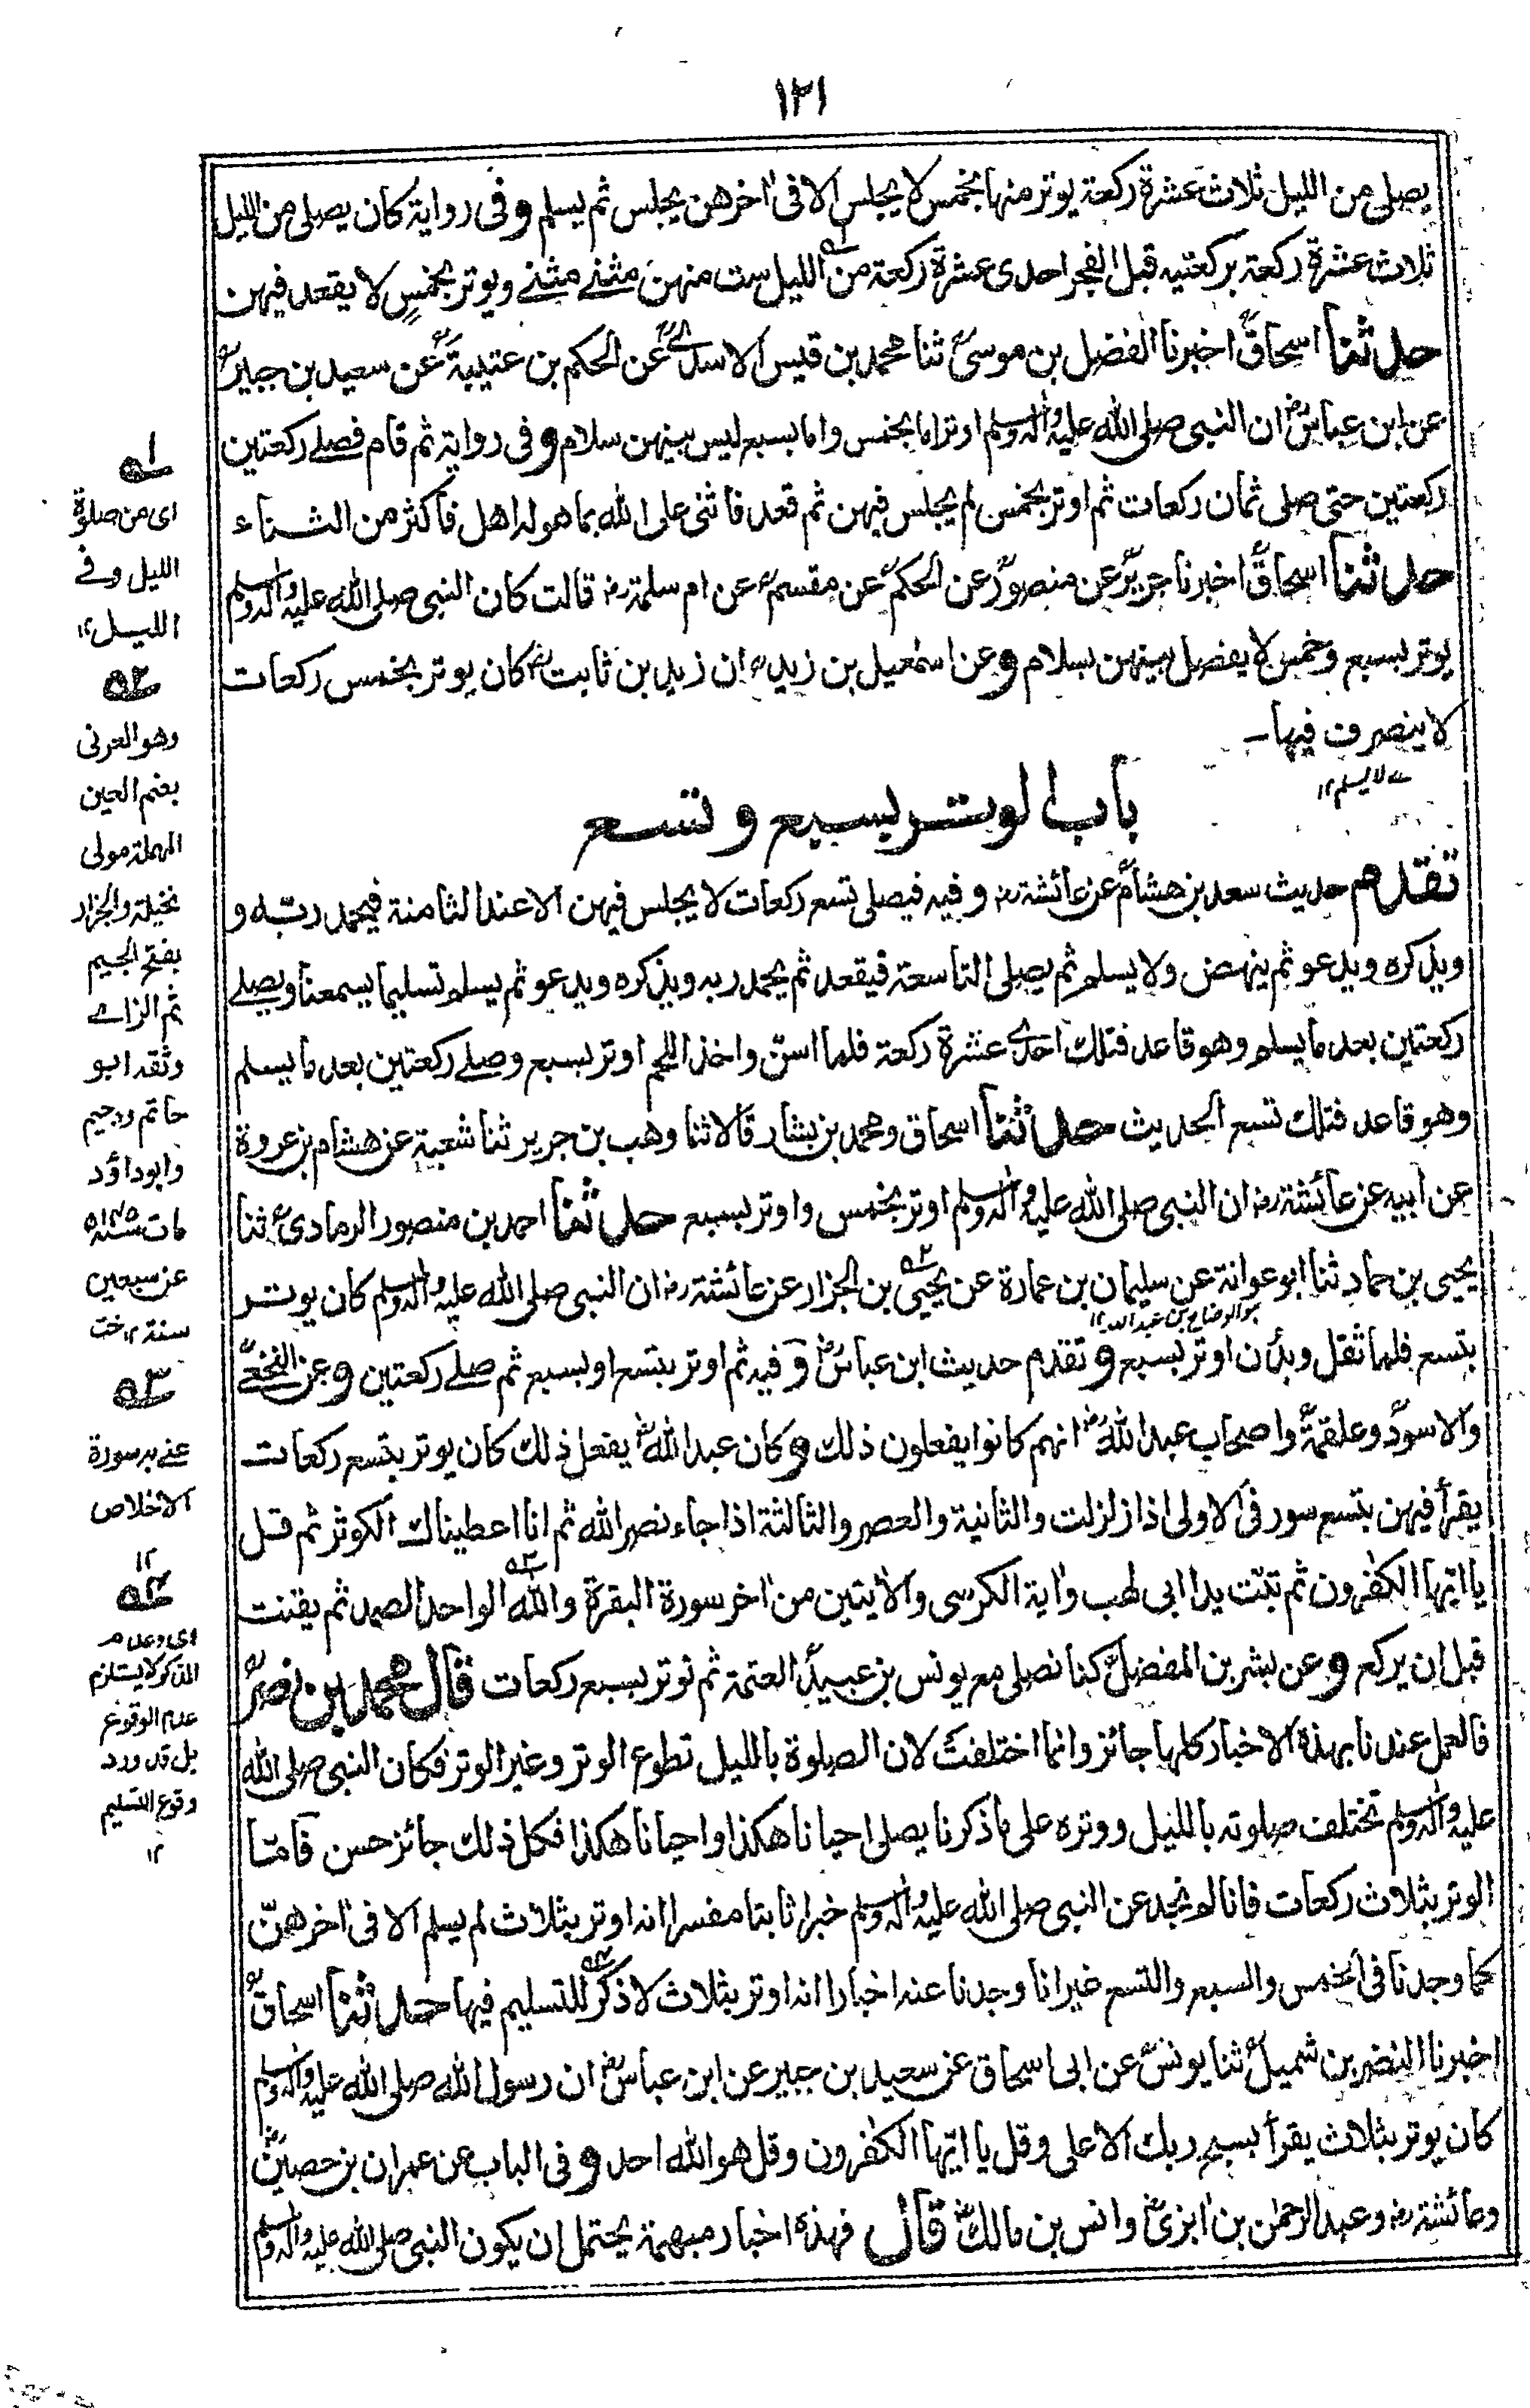 ١٢١
يصلى من الليل ثلاث عشرة ركعة يوتر منها بخمس لا يجلس الا فى اخرهن يجلس ثم يسلم وفى رواية كان يصلى من الليل
ثلاث عشرة ركعة بركعتيه قبل الفجر احدى عشرة ركعة من الليل ست منهن مثنے مثنے ويوتر بخمس لا يقعد فيهن
حدثنا اسحاق اخبرنا الفضل بن موسى ثنا محمد بن قيس الاسدى عن الحكم بن عتيبة عن سعيد بن جبير
عن ابن عباس ان النبى صلى الله عليه واله وسلم اوتر اما بخمس واما بسبع ليس بينهن سلام وفى رواية ثم قام فصلے ركعتين
ركعتين حتى صلى ثمان ركعات ثم اوتر بخمس لم يجلس فيهن ثم قعد فاثنى على الله بما هو له اهل فاكثر من الثناء
حدثنا اسحاق اخبرنا جرير عن منصور عن الحكم عن مقسم عن ام سلمة رض قالت كان النبى صلى الله عليه واله وسلم
يوتر بسبع وخمس لا يفصل بينهن بسلام وعن اسمعيل بن زيد ان زيد بن ثابت كان يوتر بخمس ركعات
لا ينصرف فيها-
ے لا يسلم ١٢
باب الوتر بسبع وتسع
تقدم حديث سعد بن هشام عن عائشة رض وفيه فيصلى تسع ركعات لا يجلس فيهن الا عند الثامنة فيحمد ربه و
ويذكره ويدعو ثم ينهض ولا يسلم ثم يصلى التاسعة فيقعد ثم يحمد ربه ويذكره ويدعو ثم يسلم تسليما يسمعنا ويصلے
ركعتين بعد ما يسلم وهو قاعد فتلك احدے عشرة ركعة فلما اسنّ واخذ اللحم اوتر بسبع وصلے ركعتين بعد ما يسلم
وهو قاعد فتلك تسع الحديث حدثنا اسحاق ومحمد بن بشار قالا ثنا وهب بن جرير ثنا شعبة عن هشام بن عروة
عن ابيه عن عائشة رض ان النبى صلى الله عليه واله وسلم اوتر بخمس واوتر بسبع حدثنا احمد بن منصور الرمادى ثنا
يحيى بن حماد ثنا ابو عوانة عن سليمان بن عمارة عن يحيى بن الجزار عن عائشة رض ان النبى صلى الله عليه واله وسلم كان يوتر
هو الوضاح بن عبد الله ١٢
بتسع فلما ثقل وبدن اوتر بسبع وتقدم حديث ابن عباس وفيه ثم اوتر بتسع او بسبع ثم صلے ركعتين وعن النخعے
والاسود وعلقمة واصحاب عبد الله انهم كانوا يفعلون ذلك وكان عبد الله يفعل ذلك كان يوتر بتسع ركعات
يقرأ فيهن بتسع سور فى الاولى اذا زلزلت والثانية والعصر والثالثة اذا جاء نصر الله ثم انا اعطيناك الكوثر ثم قل
يا ايها الكفرون ثم تبت يدا ابى لهب واية الكرسى والايتين من اخر سورة البقرة والله الواحد الصمد ثم يقنت
قبل ان يركع وعن بشر بن المفضل كنا نصلى مع يونس بن عبيد العتمة ثم نوتر بسبع ركعات قال محمد بن نصر
فالعمل عندنا بهذه الاخبار كلها جائز وانما اختلفت لان الصلوة بالليل تطوع الوتر وغير الوتر فكان النبى صلى الله
عليه واله وسلم تختلف صلوته بالليل ووتره على ما ذكرنا يصلى احيانا هكذا واحيانا هكذا فكل ذلك جائز حسن فامّا
الوتر بثلاث ركعات فانا لم نجد عن النبى صلى الله عليه واله وسلم خبرا ثابتا مفسرا انه اوتر بثلاث لم يسلم الا فى اخرهنّ
كما وجدنا فى الخمس والسبع والتسع غير انا وجدنا عنه اخبارا انه اوتر بثلاث لا ذكر للتسليم فيها حدثنا اسحاق
اخبرنا النضر بن شميل ثنا يونس عن ابى اسحاق عن سعيد بن جبير عن ابن عباس ان رسول الله صلى الله عليه واله وسلم
كان يوتر بثلاث يقرأ بسبح ربك الاعلى وقل يا ايها الكفرون وقل هو الله احد وفى الباب عن عمران بن حصين
وعائشة رض وعبد الرحمن بن ابزى وانس بن مالك قال فهذه اخبار مبهمة يحتمل ان يكون النبى صلى الله عليه واله وسلم
١ه
اى من صلوة
الليل وفے
الليل ١٢
٢ه
وهو العرنى
بضم العين
المهملة مولى
بخيلة والجزار
بفتح الجيم
ثم الزاے
وثقه ابو
حاتم ورحيم
وابو داؤد
مات سنة
عن سبعين
سنة ١٢ خت
٣ه
عنے به سورة
الاخلاص
١٢
٤ه
اى وعدم
الذكر لا يستلزم
عدم الوقوع
بل قد ورد
وقوع التسليم
١٢